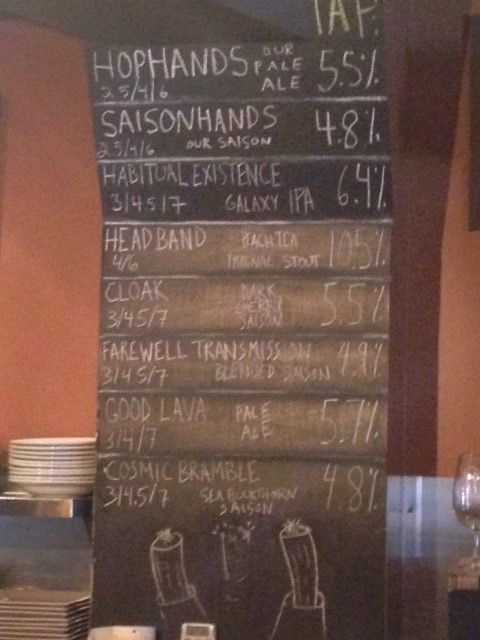 TAP:
HOPHANDS OUR PALE ALE 5.5%
2.5/4/6
SAISONHANDS 4.8%
2.5/4/6 OUR SAISON
HABITUAL EXISTENCE 6.4%
3/4.5/7 GALAXY IPA
HEADBAND 10.5%
4/6 IMPERIAL STOUT
CLOAK DARK 5.5%
3/4.5/7 SAISON
FAREWELL TRANSMISSION 4.9%
3/4.5/7 BLENDED SAISON
GOOD LAVA PALE ALE 5.7%
3/4/7
COSMIC BRAMBLE 4.8%
3/4.5/7 SEA BUCKTHORN
SAISON